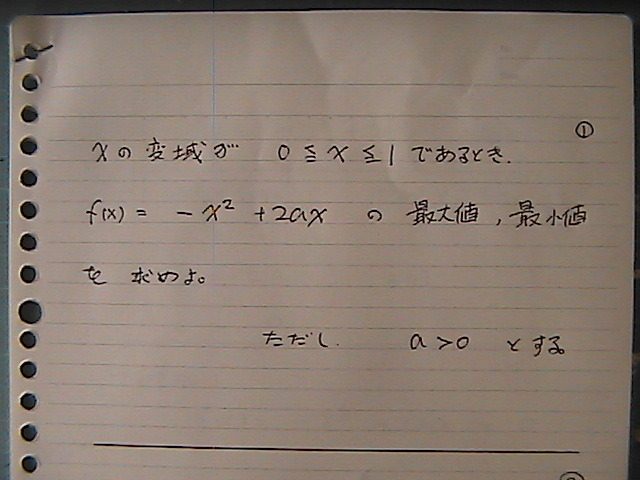 ①
xの変域が 0≦x≦1であるとき.
f(x) = -x² +2ax の 最大値, 最小値
を求めよ。
ただし. a>0 とする